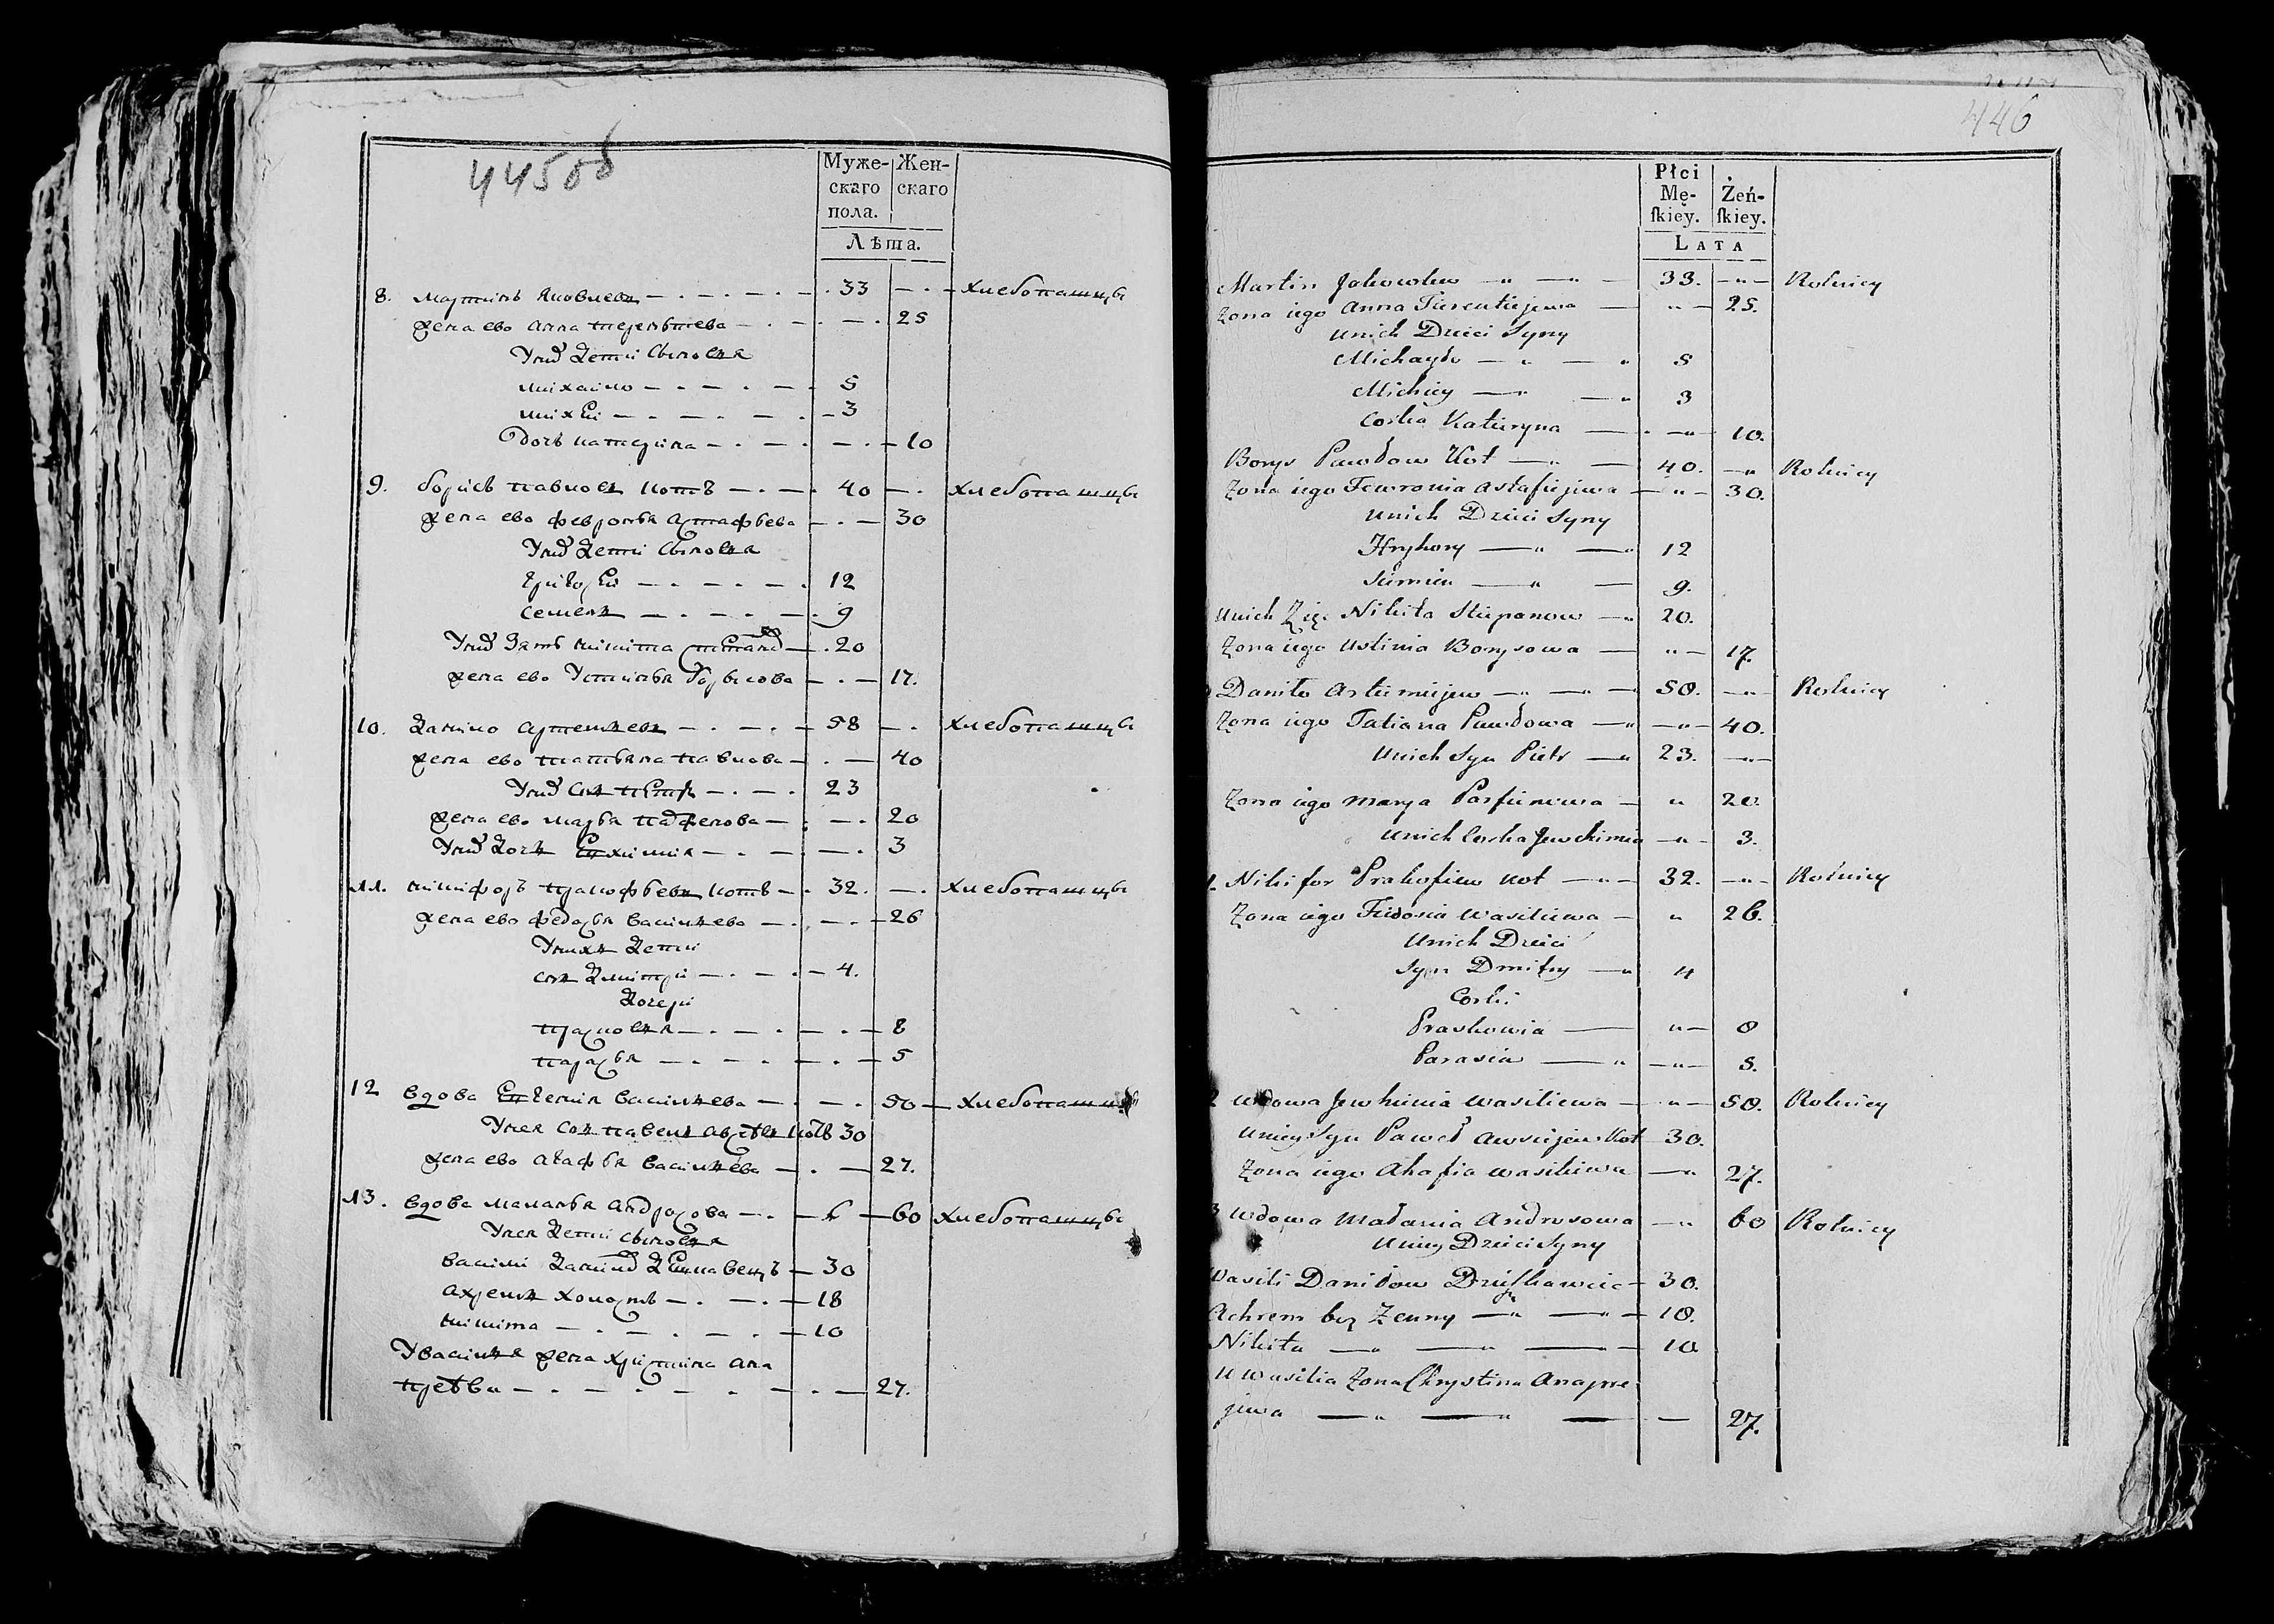 445об
Муже-
скаго
пола.
Жен-
скаго
Лѣта.
8. мартинъ Яковлевъ — 33 — хлебопашцы
жена ево анна терентьева — 25
У них дети сыновья
михаило — 5
михей — 3
дочь катерина — 10
9. борисъ павловъ котъ — 40 — хлебопашцы
жена ево февронья астафьева — 30
У них дети сыновья
григорей — 12
семенъ — 9
У них зять никита степанов — 20
жена ево Устинья борисова — 17.
10. данило артемьевъ — 58 — хлебопашцы
жена ево татьяна павлова — 40
У них сынъ петръ — 23
жена ево марья парфенова — 20
У них дочь Евхимия — 3
11. никифоръ пракофьевъ котъ — 32. — хлебопашцы
жена ево федосья васильева — 26
У нихъ дети
сынъ дмитри — 4.
дочери
прасковья — 8
парасья — 5
12 вдова Евгения васильева — 50 — хлебопашцы
У нея сынъ павелъ котъ 30
жена ево агафья васильева — 27.
13. вдова маланья андросова — 60 хлебопашцы
У нея дети сыновья
василей данилов — 30
ахремъ холостъ — 18
никита — 10
У василья жена христина ана
преева — 27.
446
Płci
Mę-
ſkiey.
Żeń-
ſkiey.
LATA
Martin Jakowlew — 33. — Rolnicy
Żona iego Anna Tierentiejewa — 25.
unich Dzieci Syny
Michayło — 5
Michiey — 3
Corka Katieryna — 10.
Borys Pawłow Kot — 40. — Rolnicy
Żona iego Fewronia Astafiejewa — 30.
unich Dzieci Syny
Hryhory — 12
Siemien — 9.
unich Zięć Nikita Stiepanow — 20.
Żona iego Ustinia Borysowa — 17.
Daniło Artiemiejew — 58. — Rolnicy
Żona iego Tatiana Pawłowa — 40.
Unich Syn Piotr — 23. —
Żona iego Marya Parfienowa — 20.
unich Corka Jewchimia — 3.
Nikifor Prakofiew Kot — 32. — Rolnicy
Żona iego Fiedosia Wasiliewa — 26.
Unich Dzieci
Syn Dmitry — 4
Corki
Praskowia — 8
Parasia — 5.
Wdowa Jewhienia Wasiliewa — 50. Rolnicy
uniey Syn Paweł Awsiejew Kot 30.
Żona iego Ahafia Wasiliewa — 27.
Wdowa Małania Androsowa — 60 Rolnicy
Uniey Dzieci Syny
Wasili Daniłow — 30.
Achrem bez Żenny — 18.
Nikita — 10
u Wasilia Żona Chrystina Anapre
jewa — 27.